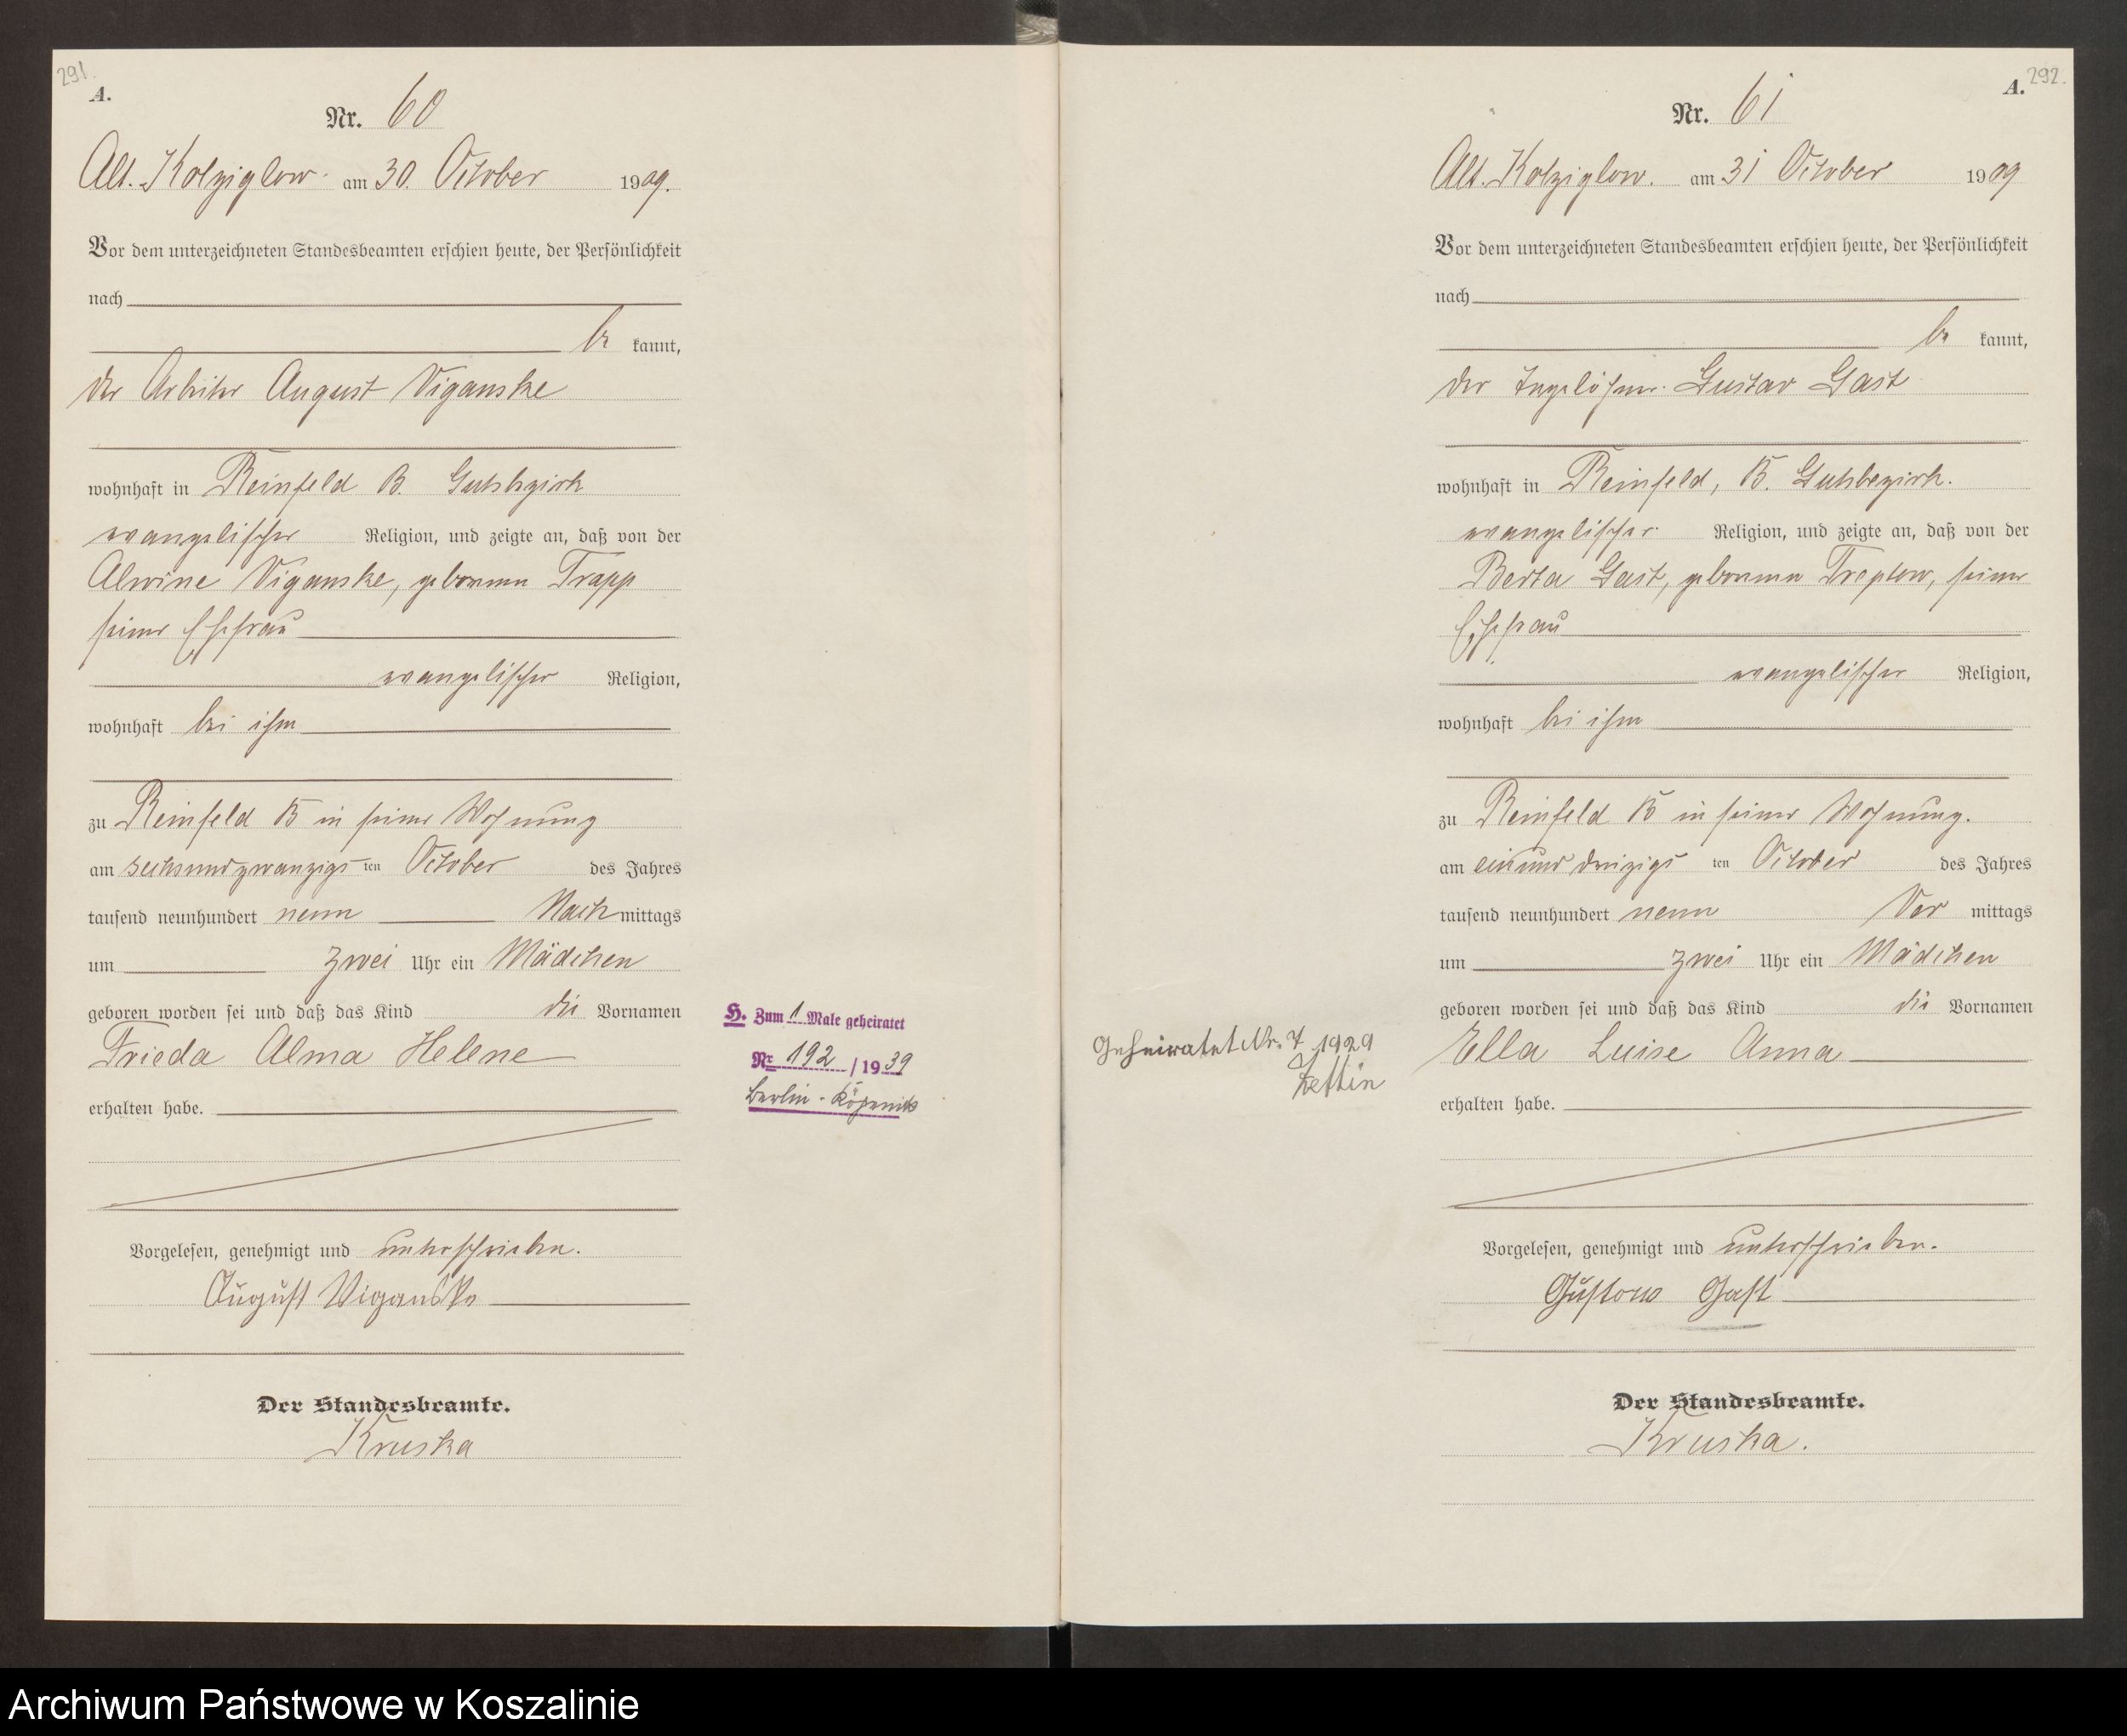 291.
A.
Nr. 60
Alt. Kolziglow. am 30. October 1909.
Vor dem unterzeichneten Standesbeamten erschien heute, der Persönlichkeit
nach
be kannt,
der Arbeiter August Viganske
wohnhaft in Reinfeld B. Gutsbezirk
evangelischer Religion, und zeigte an, daß von der
Alwine Viganske, geborenen Trapp
seiner Ehefrau
evangelischer Religion,
wohnhaft bei ihm
zu Reinfeld B in seiner Wohnung
am sechsundzwanzigs ten October des Jahres
tausend neunhundert neun Nach mittags
um zwei Uhr ein Mädchen
geboren worden sei und daß das Kind die Vornamen
Frieda Alma Helene
erhalten habe.
Vorgelesen, genehmigt und unterschrieben.
August Viganske
Der Standesbeamte.
Kruska
H. Zum 1 Male geheiratet
Nr 192 / 1939
Berlin - Köpenick
292.
A.
Nr. 61
Alt. Kolziglow. am 31 October 1909
Vor dem unterzeichneten Standesbeamten erschien heute, der Persönlichkeit
nach
be kannt,
der Tagelöhner Gustav Gast
wohnhaft in Reinfeld, B. Gutsbezirk.
evangelischer Religion, und zeigte an, daß von der
Berta Gast, geborenen Treptow, seiner
Ehefrau
evangelischer Religion,
wohnhaft bei ihm
zu Reinfeld B in seiner Wohnung.
am einunddreizigs ten October des Jahres
tausend neunhundert neun Vor mittags
um zwei Uhr ein Mädchen
geboren worden sei und daß das Kind die Vornamen
Ella Luise Anna
erhalten habe.
Vorgelesen, genehmigt und unterschrieben.
Gustow Gast
Der Standesbeamte.
Kruska.
Geheiratet Nr. 7 1929
Zettin
Archiwum Państwowe w Koszalinie